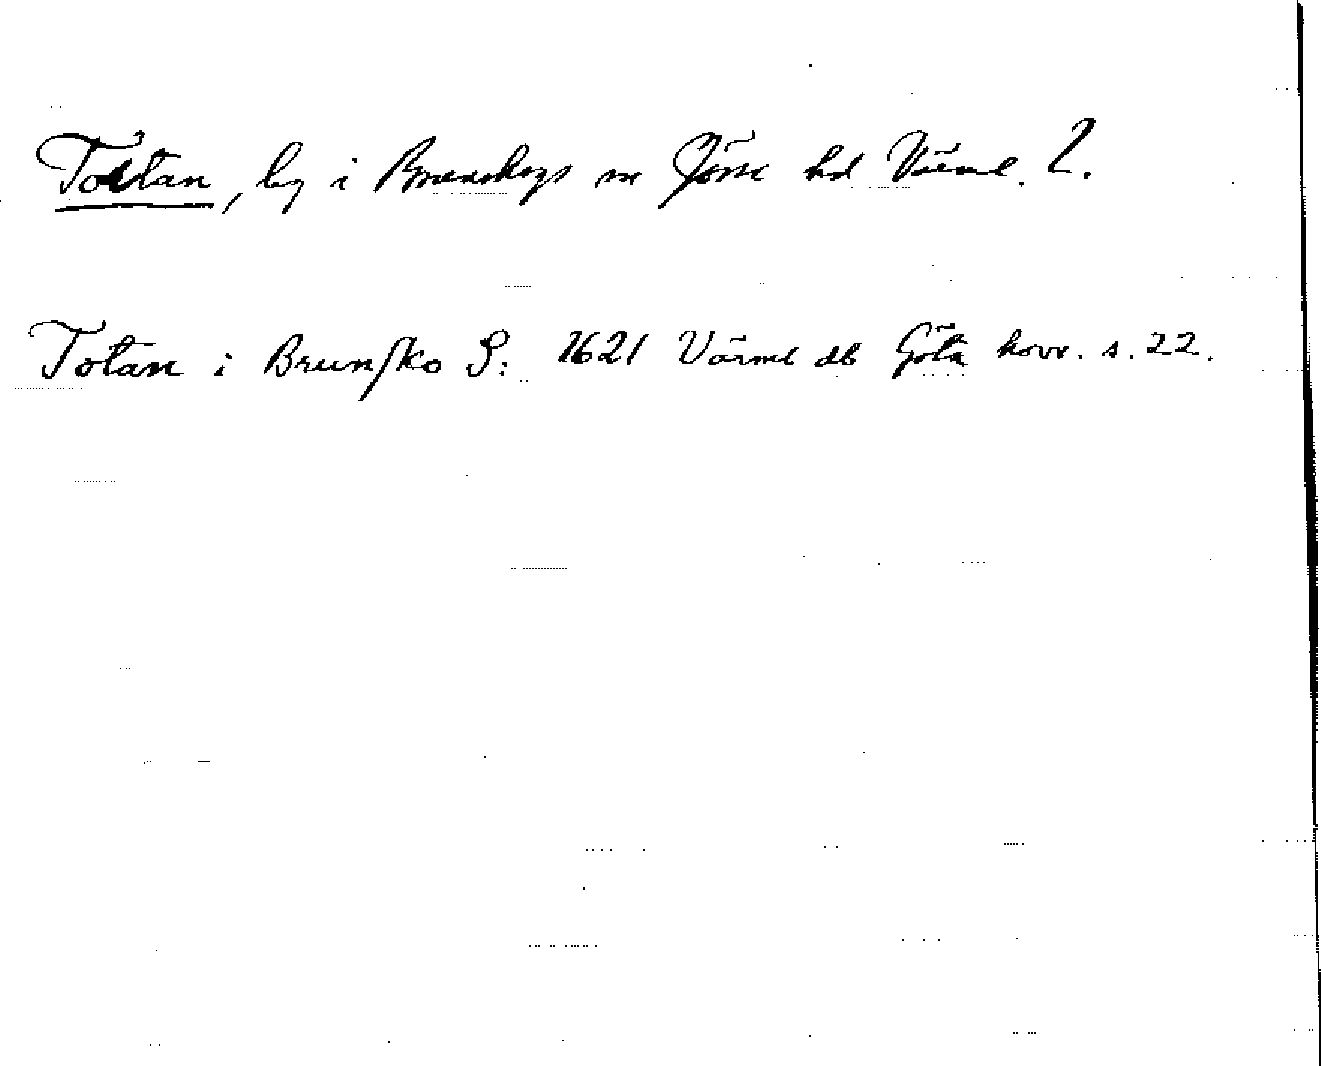 Tottan, by i Brunskogs sn Jösse hd Värml. L.
Totan i Brunsko S: 1621 Värml db Göta hovr. s. 22.